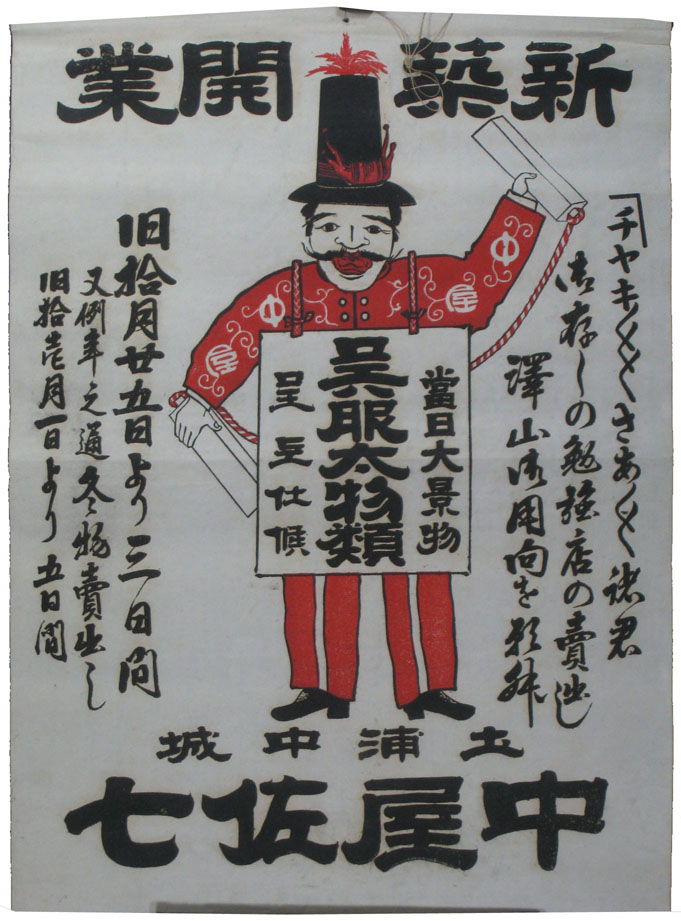 新築開業
チヤキ〱さあ〱諸君
御存しの勉強店の賣出し
澤山御用向を願升
中
屋
中
屋
當日大景物
呉服太物類
呈仕候
旧拾月廿五日より三日間
又例年之通冬物賣出し
旧拾壱月一日より五日間
土浦中城
中屋佐七